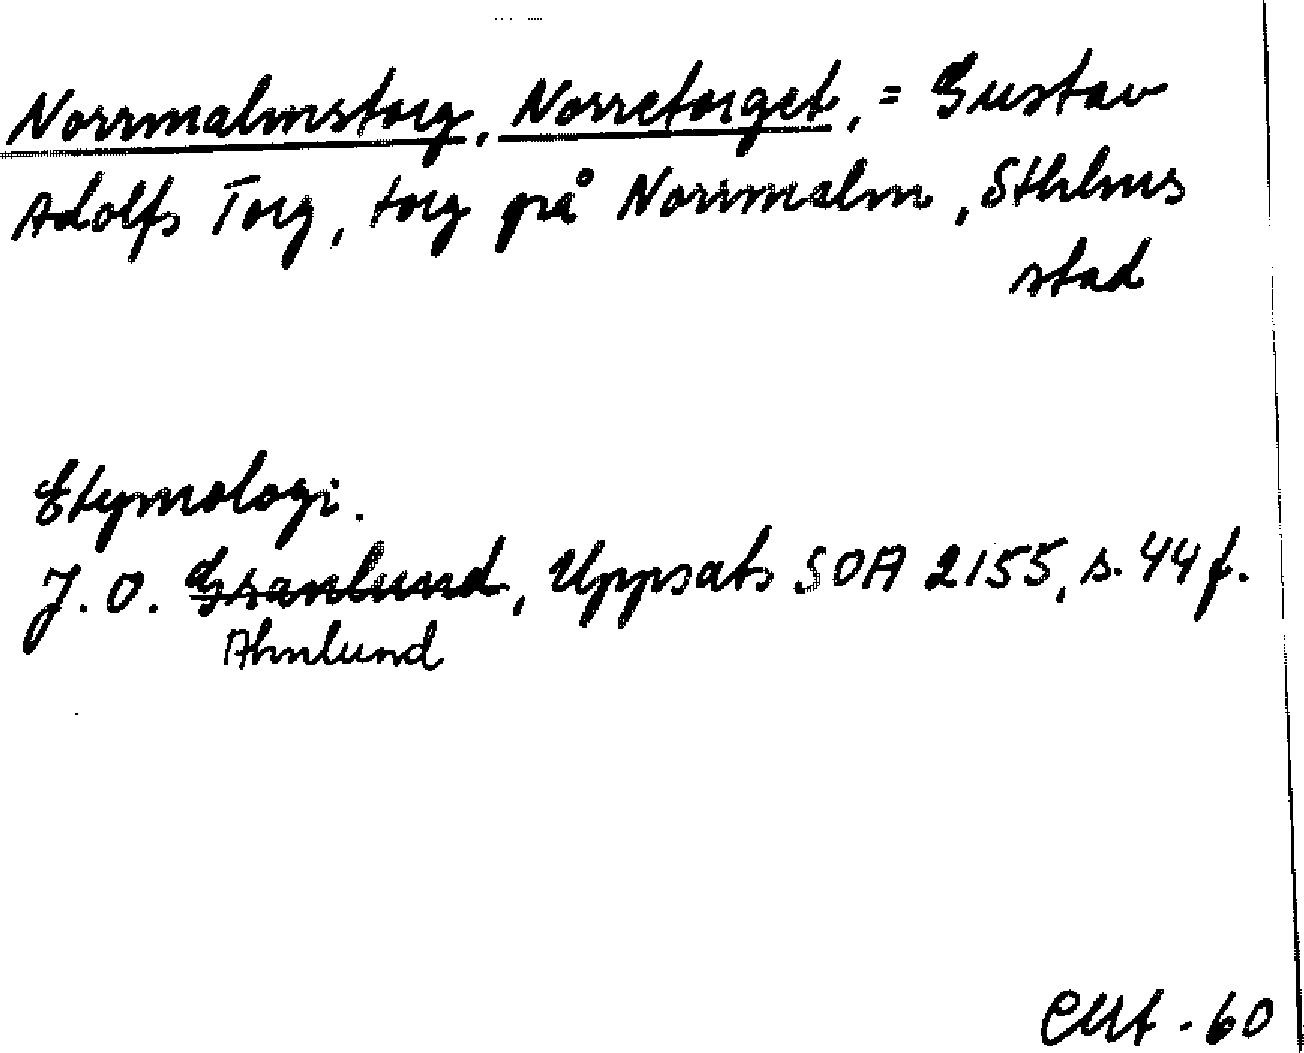 Norrmalmstorg, Norretorget, = Gustav
Adolfs Torg, torg på Norrmalm, Sthlms
stad
Etymologi.
J. O. Granlund, Uppsats SOA 2155, s. 44 f.
Ahnlund
-60